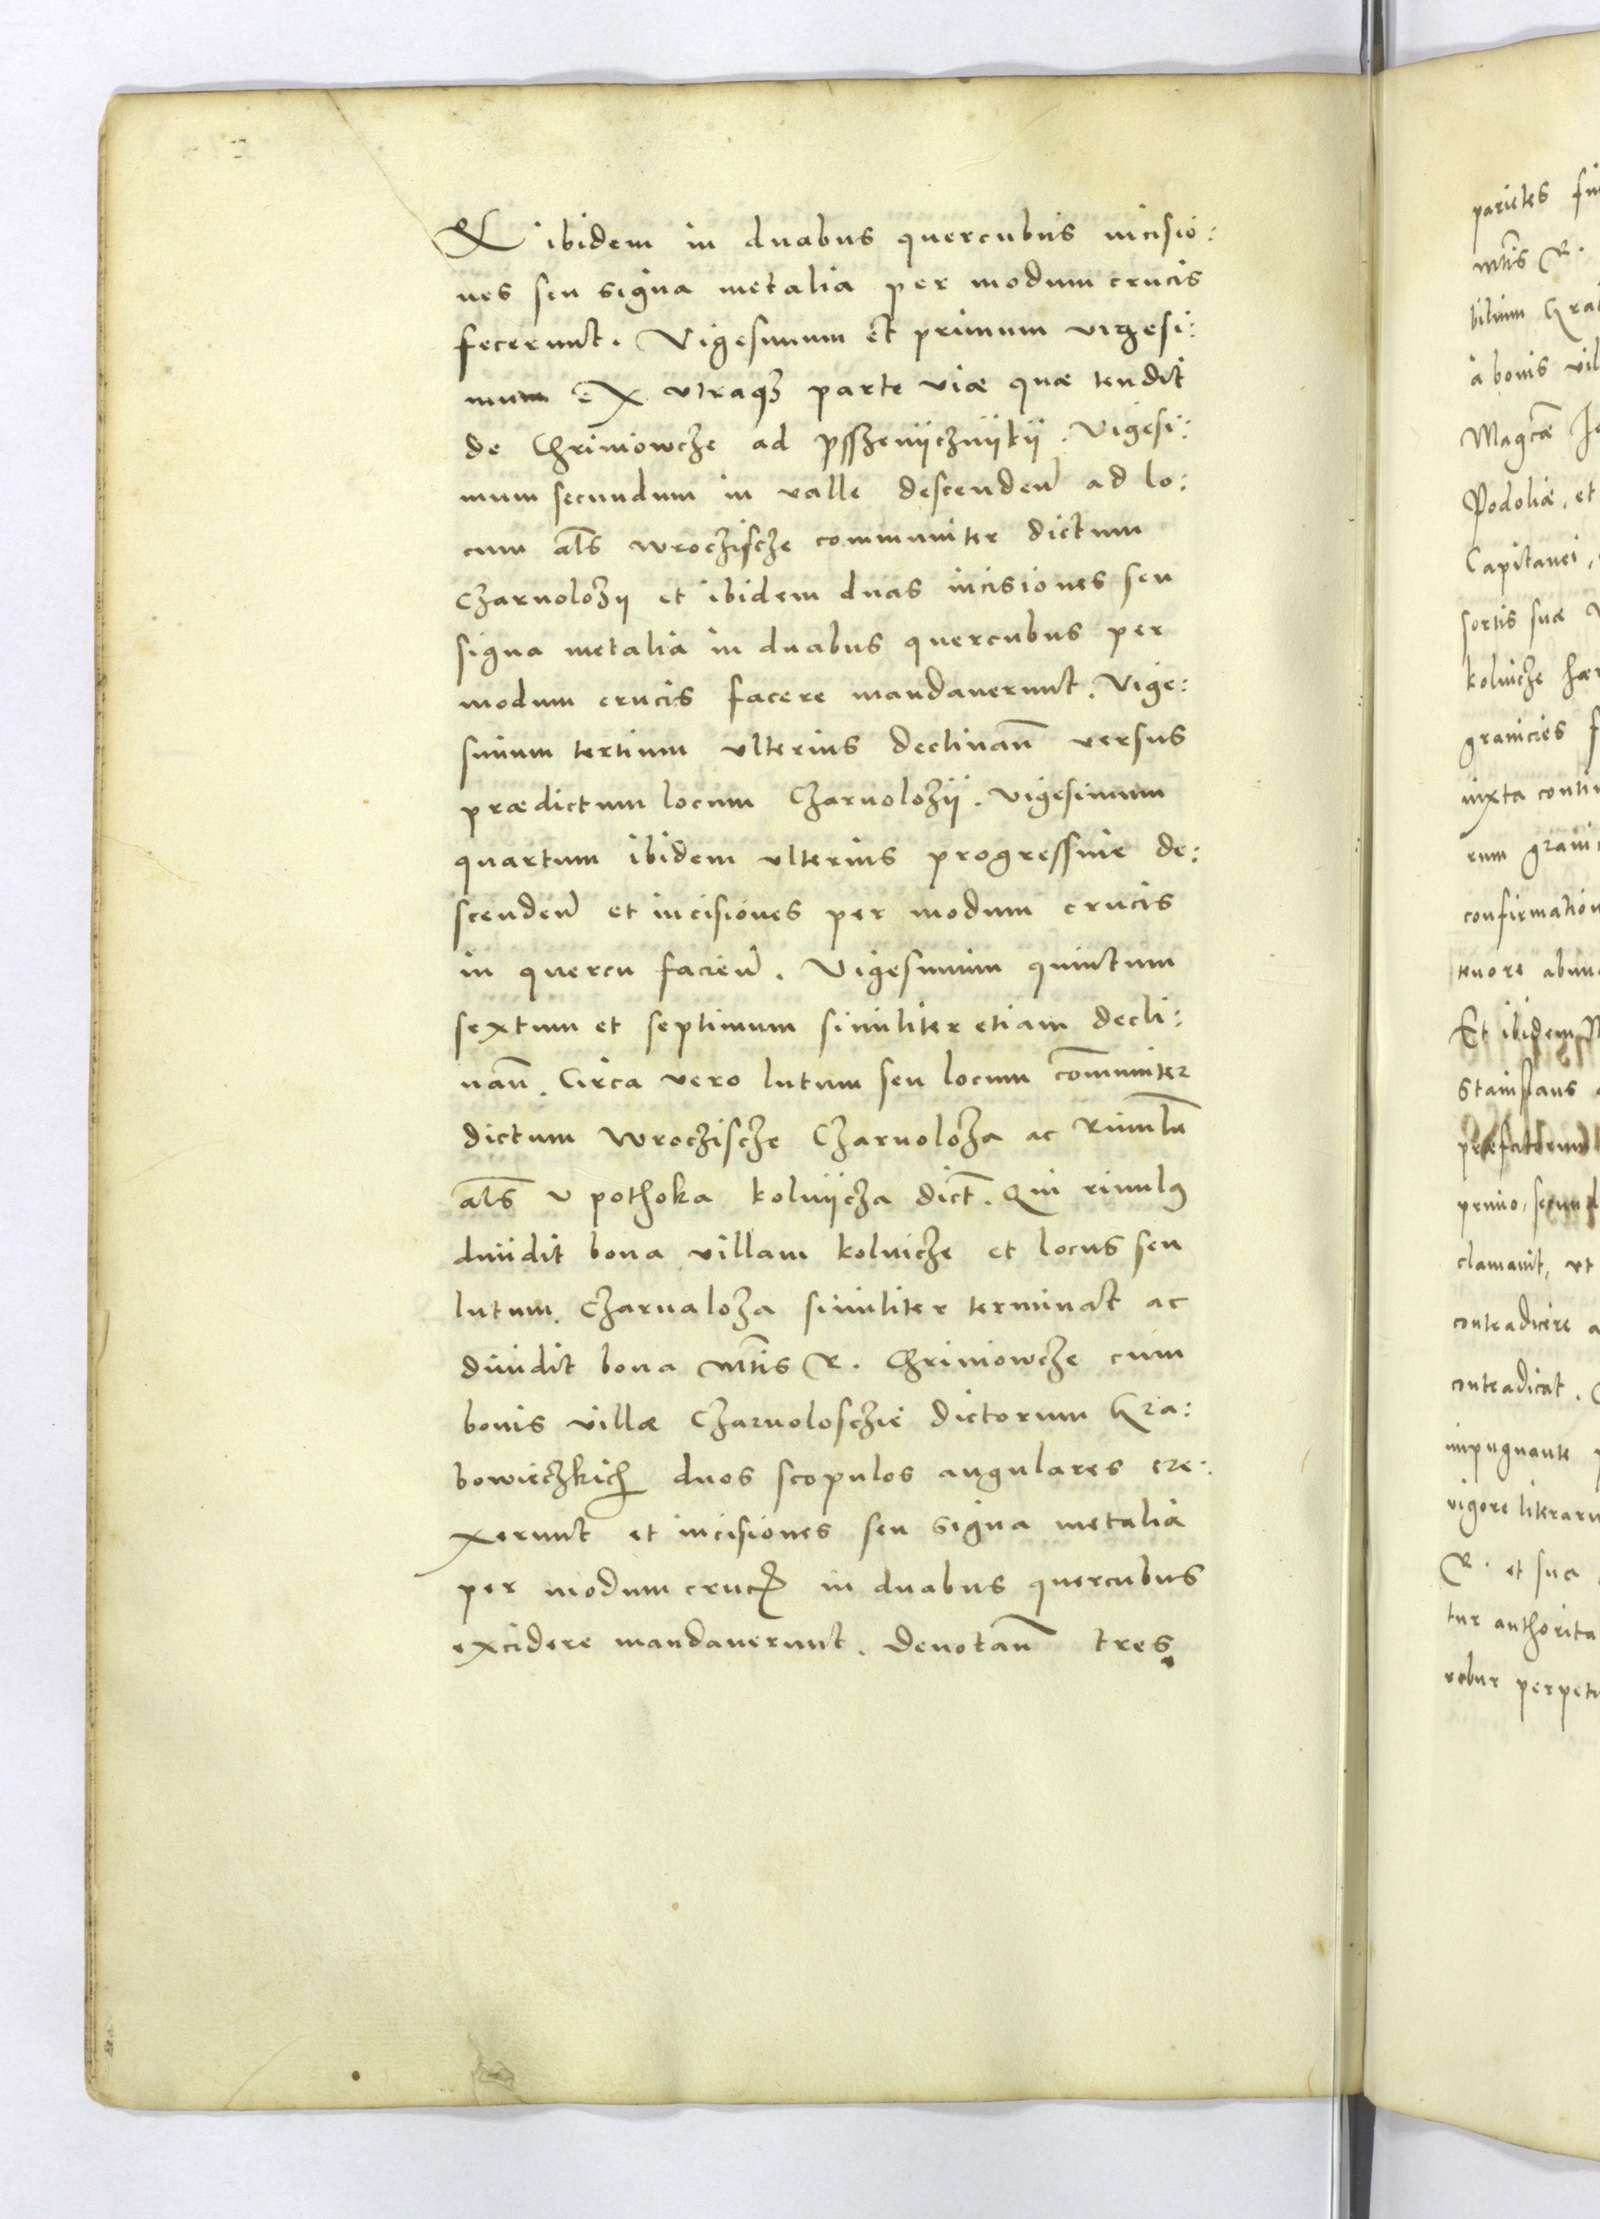 Et ibidem in duabus quercubus incisio:
nes seu signa metalia per modum crucis
fecerunt. Vigesimum et primum vigesi:
mum ex utraq₃ parte viæ quæ tendit
de Chriniowcze ad psszenÿcznÿkÿ. Vigesi:
mum secundum in valle descenden̄ ad lo:
cum al̄s wroczische communiter dictum
Czarnolozÿ et ibidem duas incisiones seu
signa metalia in duabus quercubus per
modum crucis facere mandaverunt. Vige:
simum tertium ulterius declinan̄ versus
prædictum locum Czarnolozÿ. Vigesimum
quartum ibidem ulterius progressive de:
scenden̄ et incisiones per modum crucis
in quercu facien̄. Vigesimum quintum
sextum et septimum similiter etiam decli:
nan̄. Circa vero lutum seu locum com̄uniter
dictum wroczische Czarnoloza ac Rivulu̅
al̄s v pothoka kolnÿcza dict̄. Qui rivulꝰ
dividit bona villam kolnicze et locus seu
lutum Czarnaloza similiter terminat ac
dividit bona Mt̄is R. Chriniowcze cum
bonis villæ Czarnoloschie dictorum Gra:
bowieczkich duos scopulos angulares ere:
xerunt et incisiones seu signa metalia
per modum crucꝭ in duabus quercubus
excidere mandaverunt. Denotan̄ tres
parietes
Mt̄is R.
bilium Gra
à bonis vil
Magcæ
Podoliæ, et
Capitanei,
sortis suæ
kolnicze hær
granicies
iuxta conti
rum grani
confirmation
tenore abun
Et ibidem
Stanislaus
præfatorum
primo, secund
clamavit, ut
contradicere
contradicat.
impugnante
vigore literaru
R. et sua
tur authorita
robur perpetu